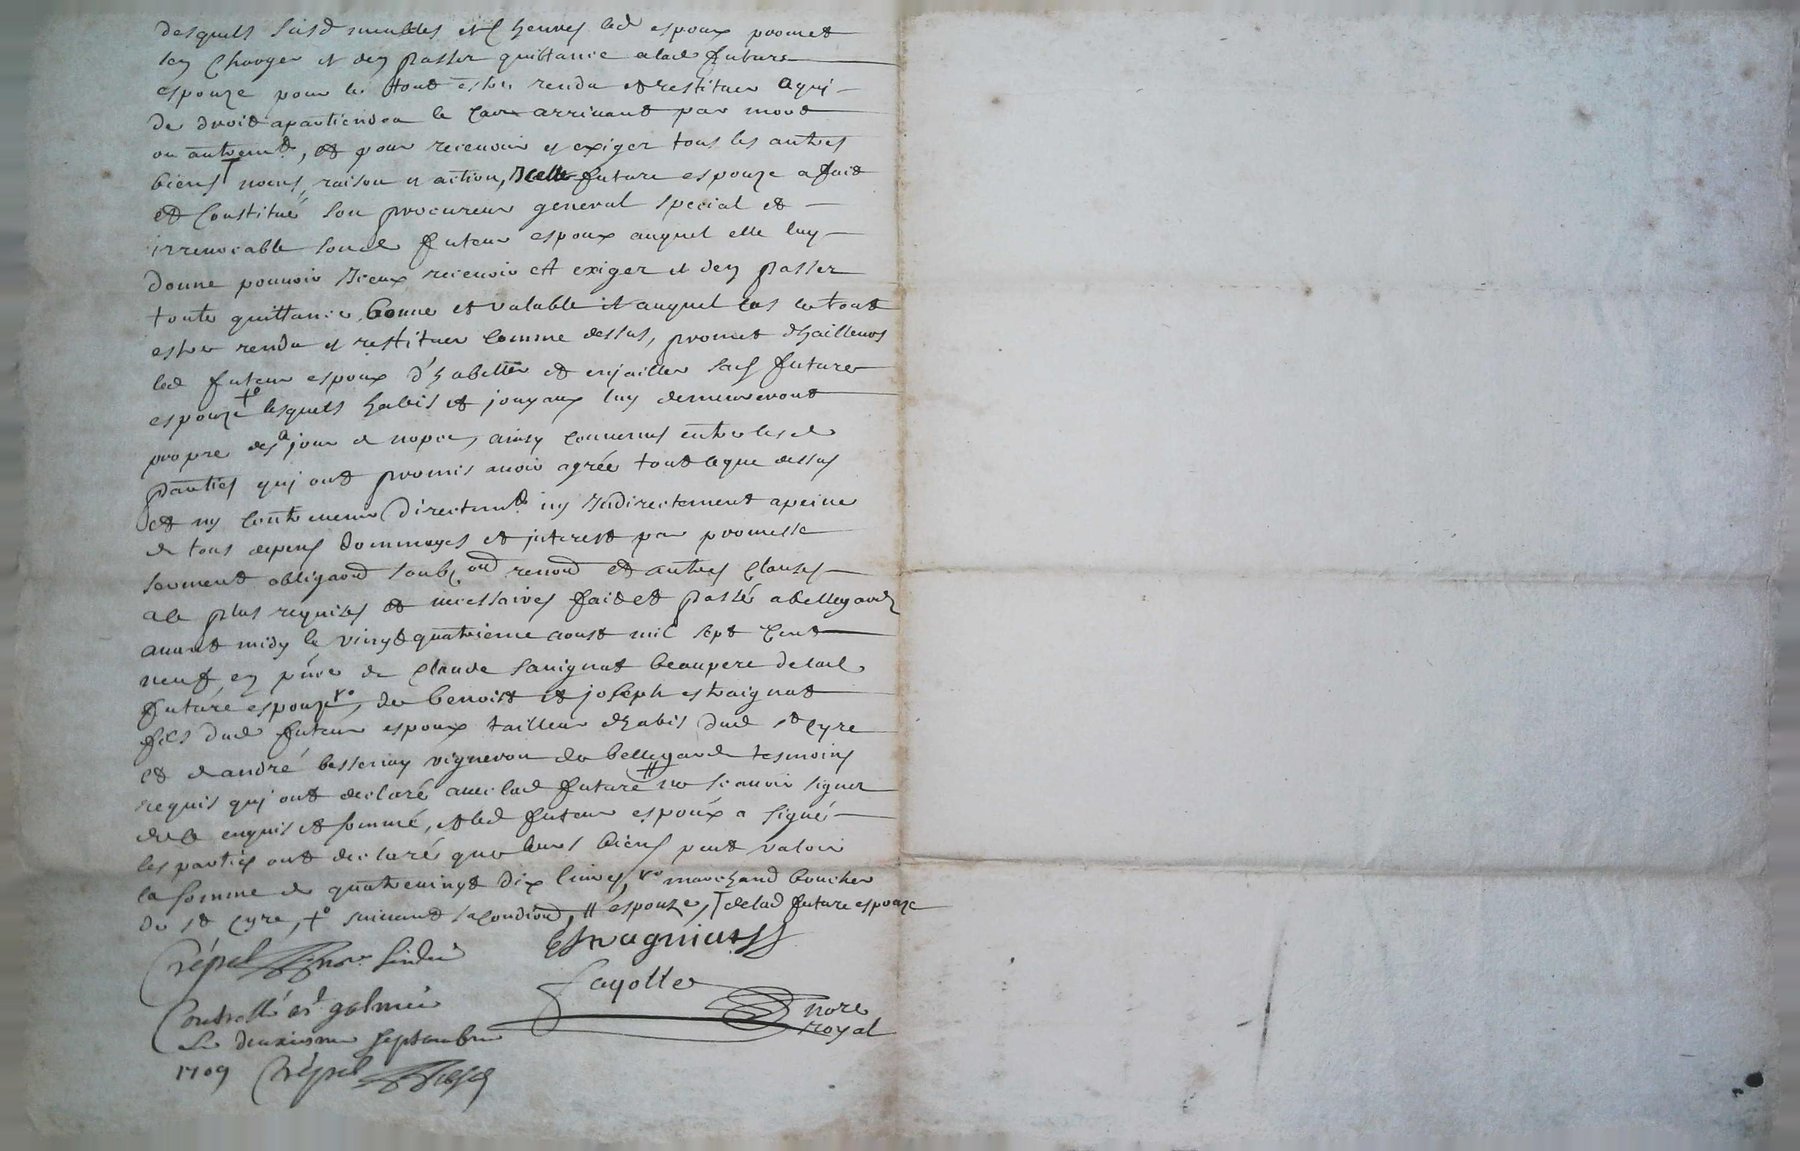 desquels susd meubles et heures led espoux promet
sen charger et den passer quittance a lad future
espouze pour le tout estre rendu et restituer a qui
de droit apartiendra le cas arrivant par mort
ou autremt, et pour recevoir et exiger tous les autres
biens noms, raison et action, Icelle future espouze a fait
et constitué son procureur general special et
irrevocable sond futeur espoux auquel elle luy
donne pouvoir Iceux recevoir et exiger et den passer
toute quittance bonne et valable et auquel cas le tout
estre rendu et restituer comme dessus, promet dhailleurs
led futeur espoux d'habiller et enjailler sad future
espouze +o lesquels habis et jouyaux luy demeureront
propre des a jour de nopce, ainsy convenus entre lesd
parties quj ont promis avoir agrée tout ceque dessus
et ny contrevenir directemt ny Indirectement a peine
de tous depens dommages et interest par promesse
serment obligaond soubz ond renond et autres clauses
a ce plus requises et necessaires fait et passé a bellegarde
avant midy le vingt quatrieme aoust mil sept cent
neuf en pnce de Claude Savignat beaupere de lad
future espouze vo, de benoist et joseph estraignat
fils dud futeur espoux tailleur dhabis dud st cyre
et d andré bessenay vigneron de bellegarde tesmoins
requis quj ont declaré avec lad future # ne scavoir signer
de ce enquis et sommé, et led futeur espoux a signé
les parties ont declaré que leurs biens peut valoir
la somme de quatrevingt dix livres, vo marchand boucher
de st Cyre, +o suivant sa condiond, # espouze, T de lad future espouze
Estragniat
Crépet
Fayolle
nore
royal
Controllé a st galmier
Le deuxieme septembre
1709 Crépet